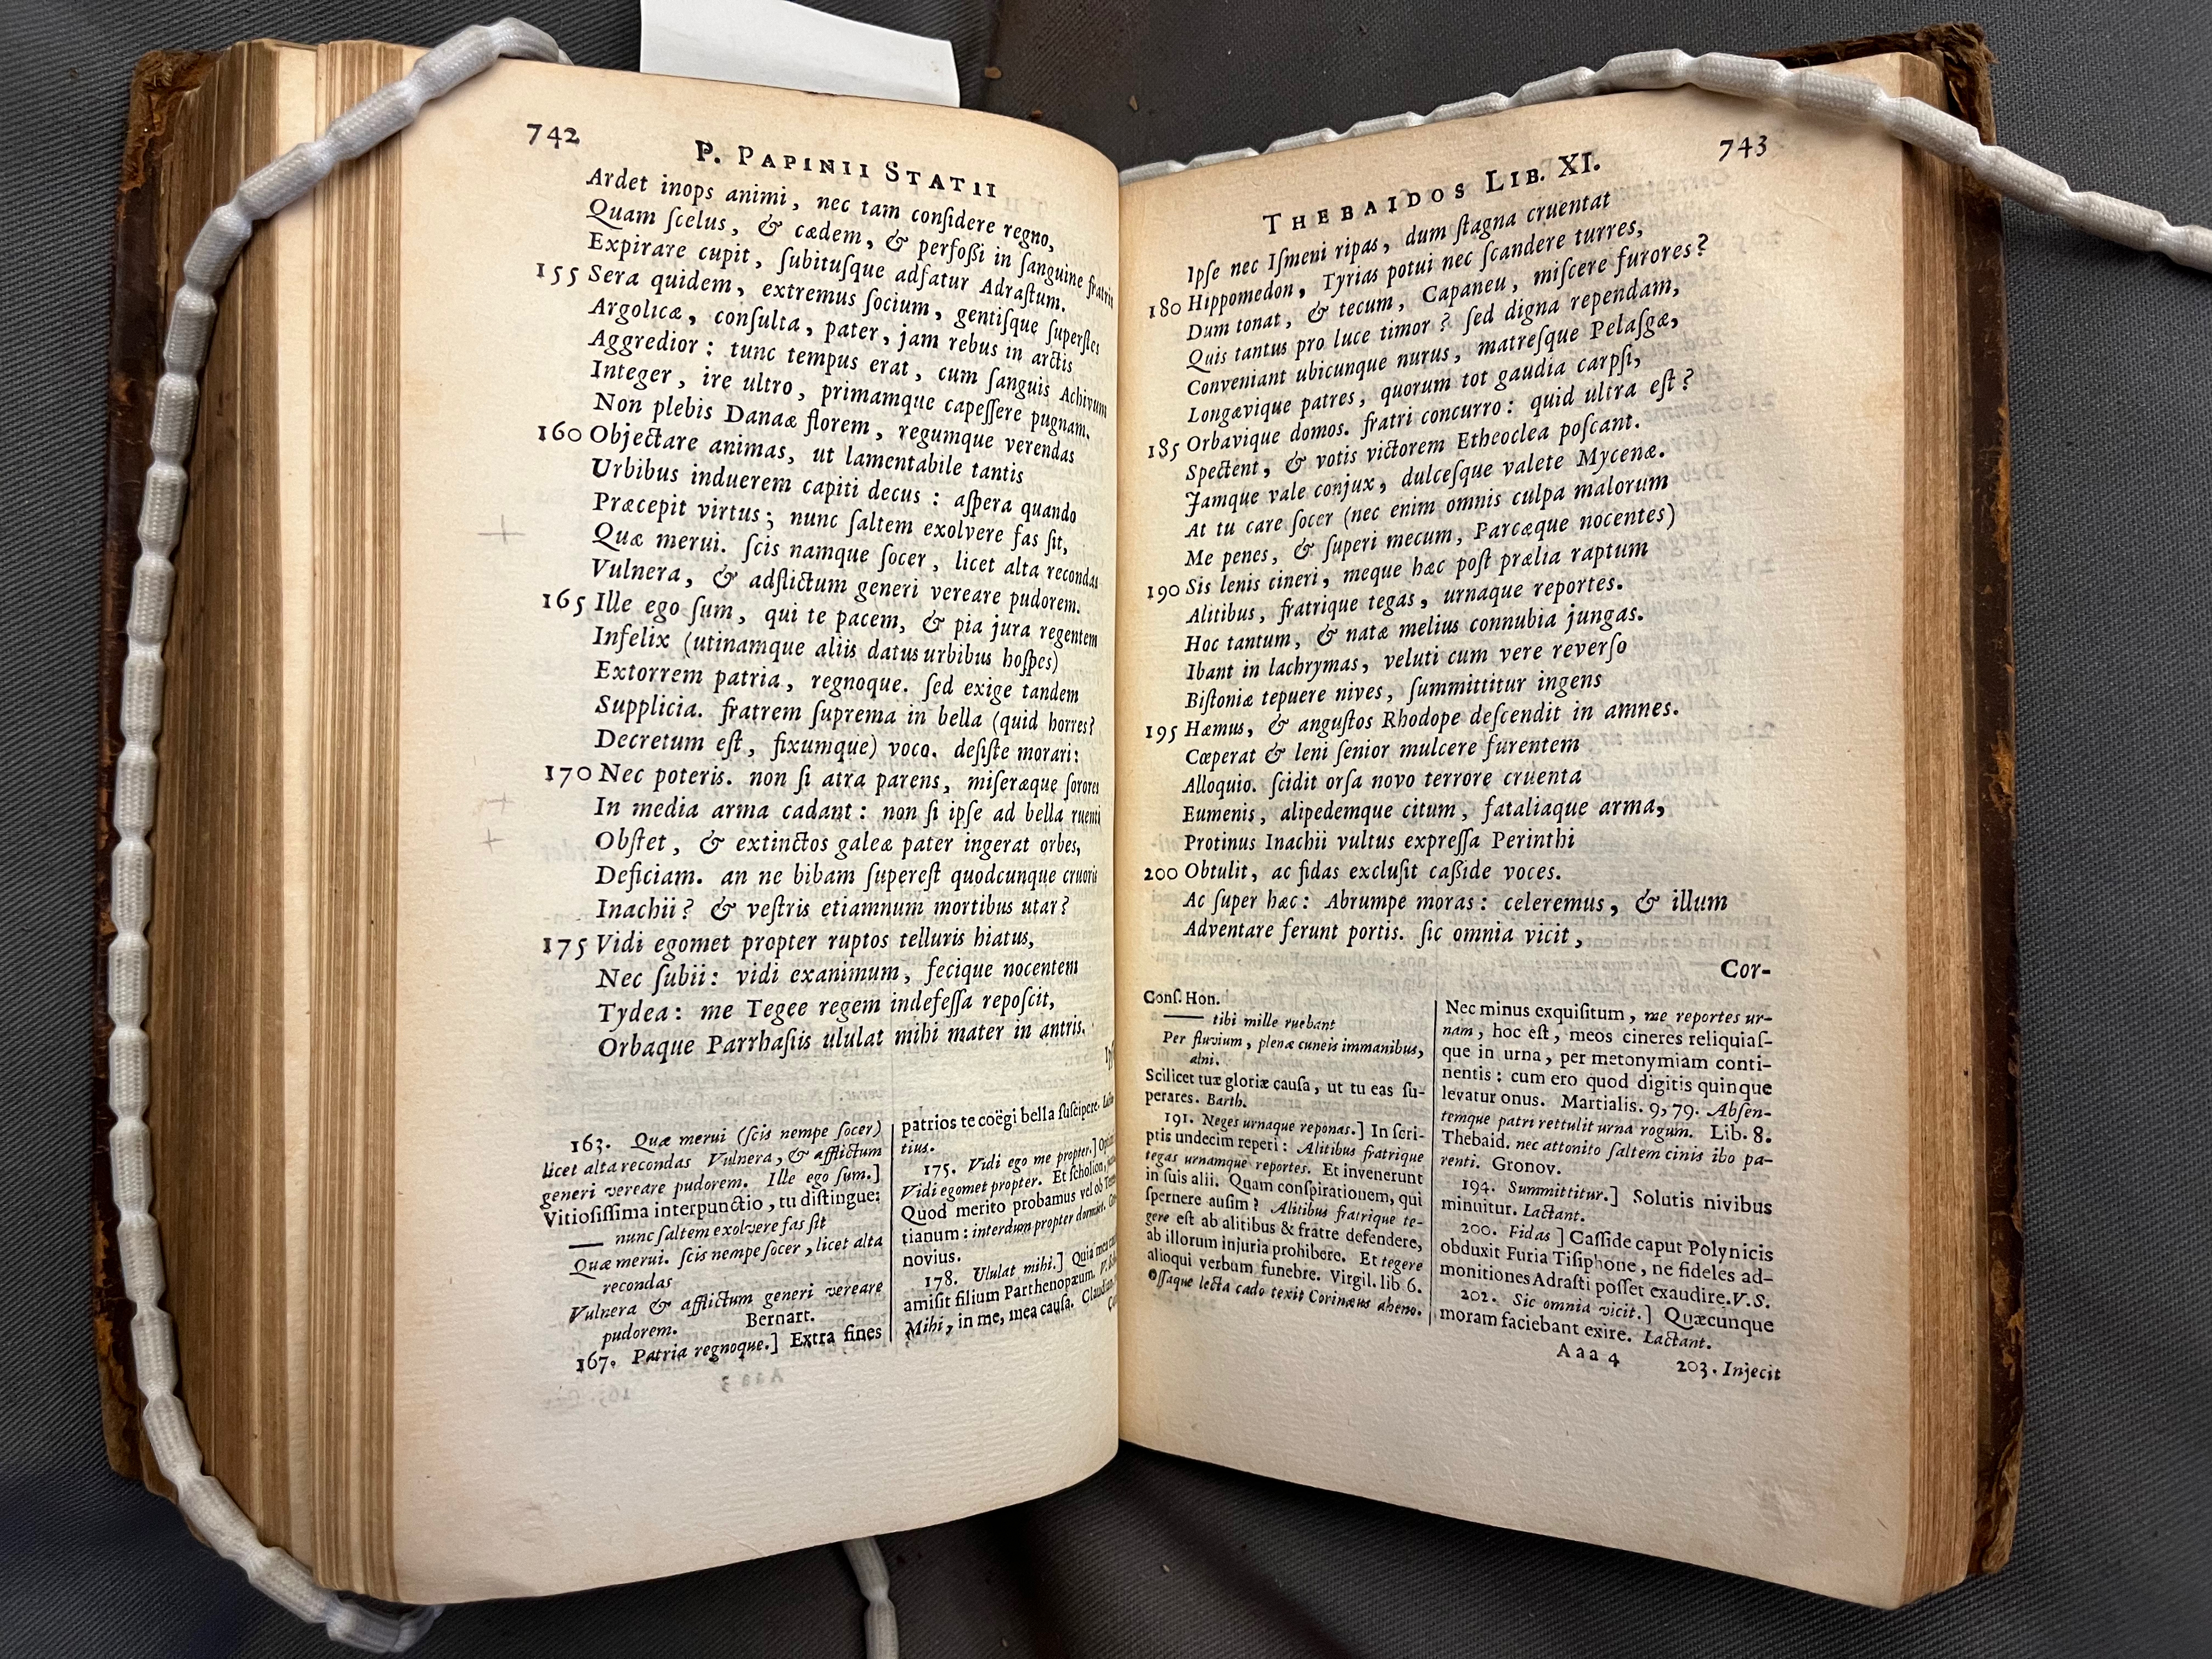 742
P. PAPINII STATII
Ardet inops animi, nec tam conſidere regno,
Quam ſcelus, & cædem, & perfoſſi in ſanguine fratris
Expirare cupit, ſubituſque adfatur Adraſtum.
155 Sera quidem, extremus ſocium, gentiſque ſuperſtes
Argolicæ, conſulta, pater, jam rebus in arctis
Aggredior: tunc tempus erat, cum ſanguis Achivum
Integer, ire ultro, primamque capeſſere pugnam.
Non plebis Danaæ florem, regumque verendas
160 Objectare animas, ut lamentabile tantis
Urbibus induerem capiti decus: aſpera quando
Præcepit virtus; nunc ſaltem exolvere fas ſit,
Quæ merui. ſcis namque ſocer, licet alta recondas
Vulnera, & adflictum generi vereare pudorem.
165 Ille ego ſum, qui te pacem, & pia jura regentem
Infelix (utinamque aliis datus urbibus hoſpes)
Extorrem patria, regnoque. ſed exige tandem
Supplicia. fratrem ſuprema in bella (quid horres?
Decretum eſt, fixumque) voco. deſiſte morari:
170 Nec poteris. non ſi atra parens, miſeræque ſorores
In media arma cadant: non ſi ipſe ad bella ruenti
Obſtet, & extinctos galeæ pater ingerat orbes,
Deficiam. an ne bibam ſupereſt quodcunque cruoris
Inachii? & veſtris etiamnum mortibus utar?
175 Vidi egomet propter ruptos telluris hiatus,
Nec ſubii: vidi exanimum, fecique nocentem
Tydea: me Tegee regem indefeſſa repoſcit,
Orbaque Parrhaſiis ululat mihi mater in antris.
163. Quæ merui (ſcis nempe ſocer)
licet alta recondas Vulnera, & afflictum
generi vereare pudorem. Ille ego ſum.]
Vitioſiſſima interpunctio, tu diſtingue:
—— nunc ſaltem exolvere fas ſit
Quæ merui. ſcis nempe ſocer, licet alta
recondas
Vulnera & afflictum generi vereare
pudorem. Bernart.
167. Patria regnoque.] Extra fines
patrios te coëgi bella ſuſcipere.
tius.
175. Vidi ego me propter.]
Vidi egomet propter. Et ſcholion,
Quod merito probamus vel ob
tianum: interdum propter dormiet.
novius.
178. Ululat mihi.] Quia mea
amiſit filium Parthenopæum. V.
Mihi, in me, mea cauſa.
743
THEBAIDOS LIB. XI.
Ipſe nec Iſmeni ripas, dum ſtagna cruentat
180 Hippomedon, Tyrias potui nec ſcandere turres,
Dum tonat, & tecum, Capaneu, miſcere furores?
Quis tantus pro luce timor? ſed digna rependam,
Conveniant ubicunque nurus, matreſque Pelaſgæ,
Longævique patres, quorum tot gaudia carpſi,
185 Orbavique domos. fratri concurro: quid ultra eſt?
Spectent, & votis victorem Etheoclea poſcant.
Jamque vale conjux, dulceſque valete Mycenæ.
At tu care ſocer (nec enim omnis culpa malorum
Me penes, & ſuperi mecum, Parcæque nocentes)
190 Sis lenis cineri, meque hæc poſt prælia raptum
Alitibus, fratrique tegas, urnaque reportes.
Hoc tantum, & natæ melius connubia jungas.
Ibant in lachrymas, veluti cum vere reverſo
Biſtoniæ tepuere nives, ſummittitur ingens
195 Hæmus, & anguſtos Rhodope deſcendit in amnes.
Cœperat & leni ſenior mulcere furentem
Alloquio. ſcidit orſa novo terrore cruenta
Eumenis, alipedemque citum, fataliaque arma,
Protinus Inachii vultus expreſſa Perinthi
200 Obtulit, ac fidas excluſit caſſide voces.
Ac ſuper hæc: Abrumpe moras: celeremus, & illum
Adventare ferunt portis. ſic omnia vicit,
Cor-
Conſ. Hon.
—— tibi mille ruebant
Per fluvium, plenæ cuneis immanibus,
alni.
Scilicet tuæ gloriæ cauſa, ut tu eas ſu-
perares. Barth.
191. Neges urnaque reponas.] In ſcri-
ptis undecim reperi: Alitibus fratrique
tegas urnamque reportes. Et invenerunt
in ſuis alii. Quam conſpirationem, qui
ſpernere auſim? Alitibus fratrique te-
gere eſt ab alitibus & fratre defendere,
ab illorum injuria prohibere. Et tegere
alioqui verbum funebre. Virgil. lib 6.
Oſſaque lecta cado texit Corinæus aheno.
Nec minus exquiſitum, me reportes ur-
nam, hoc eſt, meos cineres reliquiaſ-
que in urna, per metonymiam conti-
nentis: cum ero quod digitis quinque
levatur onus. Martialis. 9, 79. Abſen-
temque patri rettulit urna rogum. Lib. 8.
Thebaid. nec attonito ſaltem cinis ibo pa-
renti. Gronov.
194. Summittitur.] Solutis nivibus
minuitur. Lactant.
200. Fidas] Caſſide caput Polynicis
obduxit Furia Tiſiphone, ne fideles ad-
monitiones Adraſti poſſet exaudire. V. S.
202. Sic omnia vicit.] Quæcunque
moram faciebant exire. Lactant.
Aaa 4
203. Injecit